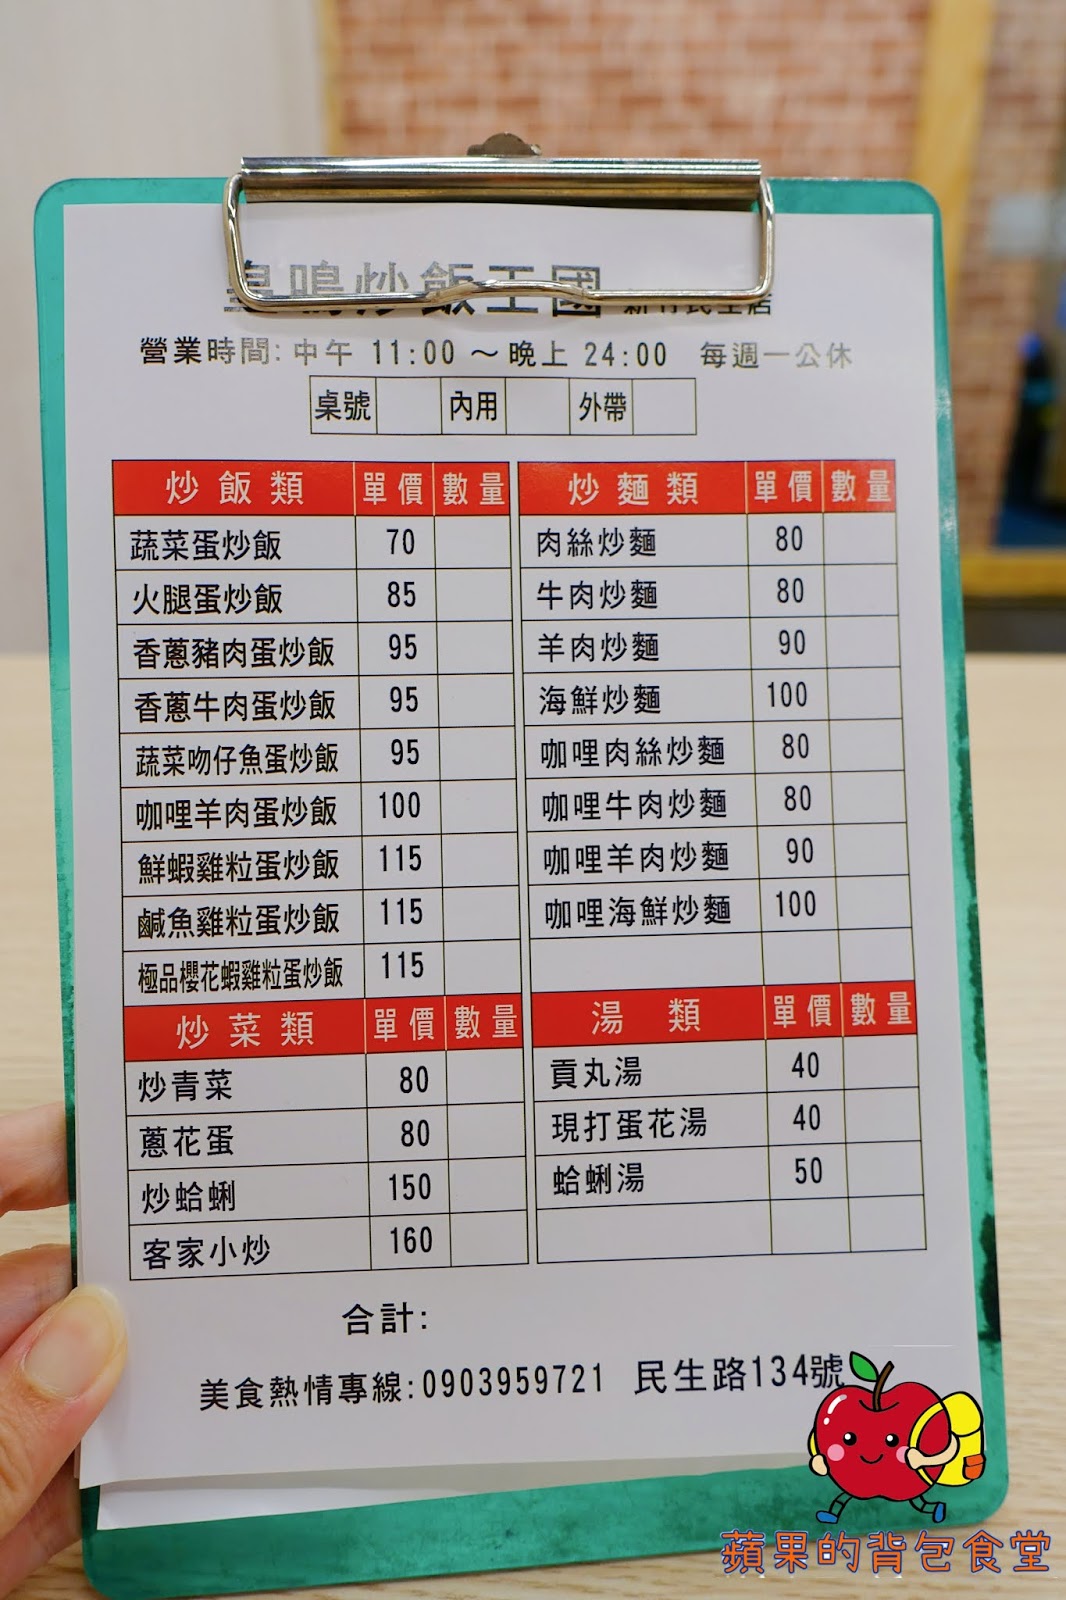 皇鳴炒飯王國 新竹民生店
營業時間: 中午 11:00 ～晚上 24:00 每週一公休
桌號 內用 外帶
炒飯類 單價 數量
蔬菜蛋炒飯 70
火腿蛋炒飯 85
香蔥豬肉蛋炒飯 95
香蔥牛肉蛋炒飯 95
蔬菜吻仔魚蛋炒飯 95
咖哩羊肉蛋炒飯 100
鮮蝦雞粒蛋炒飯 115
鹹魚雞粒蛋炒飯 115
極品櫻花蝦雞粒蛋炒飯 115
炒菜類 單價 數量
炒青菜 80
蔥花蛋 80
炒蛤蜊 150
客家小炒 160
炒麵類 單價 數量
肉絲炒麵 80
牛肉炒麵 80
羊肉炒麵 90
海鮮炒麵 100
咖哩肉絲炒麵 80
咖哩牛肉炒麵 80
咖哩羊肉炒麵 90
咖哩海鮮炒麵 100
湯類 單價 數量
貢丸湯 40
現打蛋花湯 40
蛤蜊湯 50
合計:
美食熱情專線:0903959721 民生路134號
蘋果的背包食堂